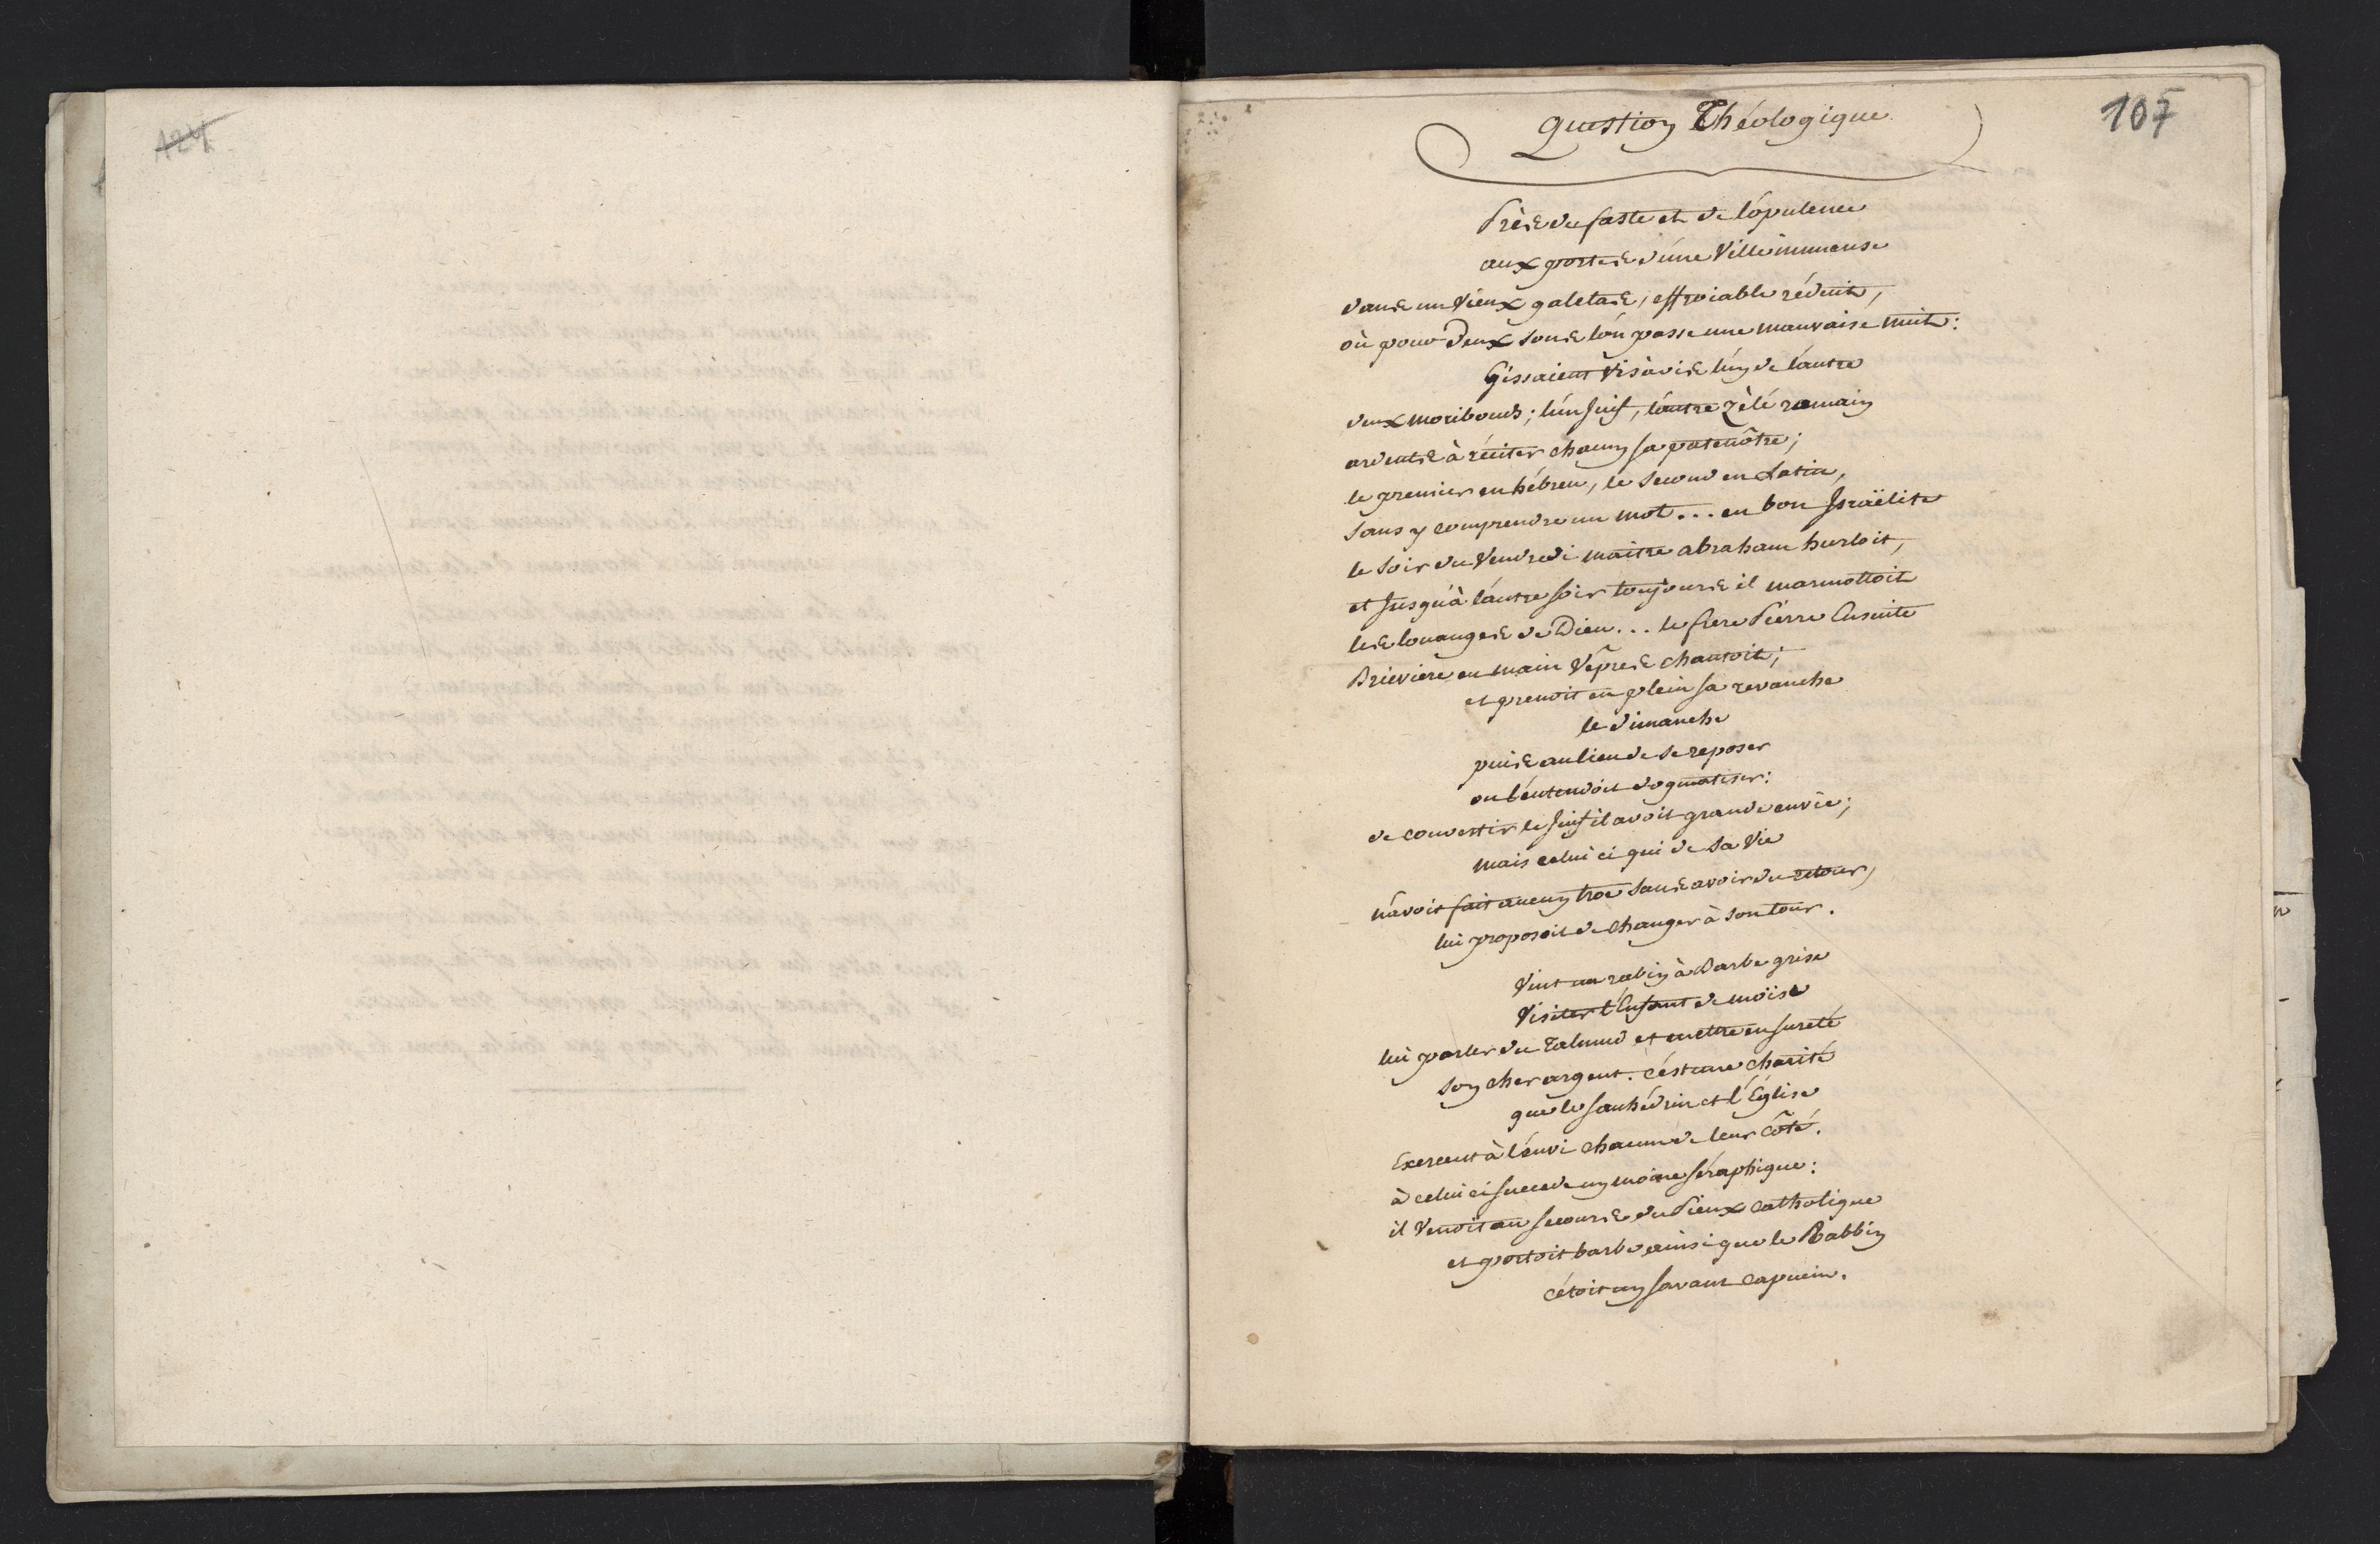 124
107
Question Théologique
Près du faste et de l'opulence
aux portes d'une Ville immense
dans un Vieux galetas, effroiable réduit,
où pour Deux sous l'on passe une mauvaise nuit:
Gissaient Vis à vis l'un de l'autre
deux moribonds; l'un Juif, l'autre zèlé romain
ardents à réciter chacun sa patenôtre;
le premier en hébreu, le second en Latin,
sans y comprendre un mot... en bon Israëlite
le soir du Vendredi maitre abraham hurloit,
et Jusqu'à l'autre soir toujours il marmottoit
les louanges de Dieu... le frere Pierre Ensuite
Brieviere en main Vêpres chantoit;
et prenoit en plein sa revanche
le dimanche
puis au lieu de se reposer
on l'entendoit dogmatiser:
de convertir le Juif il avoit grande envie;
mais celui ci qui de sa Vie
n'avoit fait aucun troc sans avoir du retour,
lui proposoit de changer à son tour.
Vint un rabin à Barbe grise
Visiter l'Enfant de moïse
lui parler du Talmud et mettre en sureté
son cher argent. c'est une charité
que le sanhédrin et l'Église
Exercent à l'envi chacun de leur côté.
à celui ci succede un moine séraphique:
il Venoit au secours du Pieux catholique
et portoit barbe ainsi que le Rabbin
c'étoit un savant capucin.